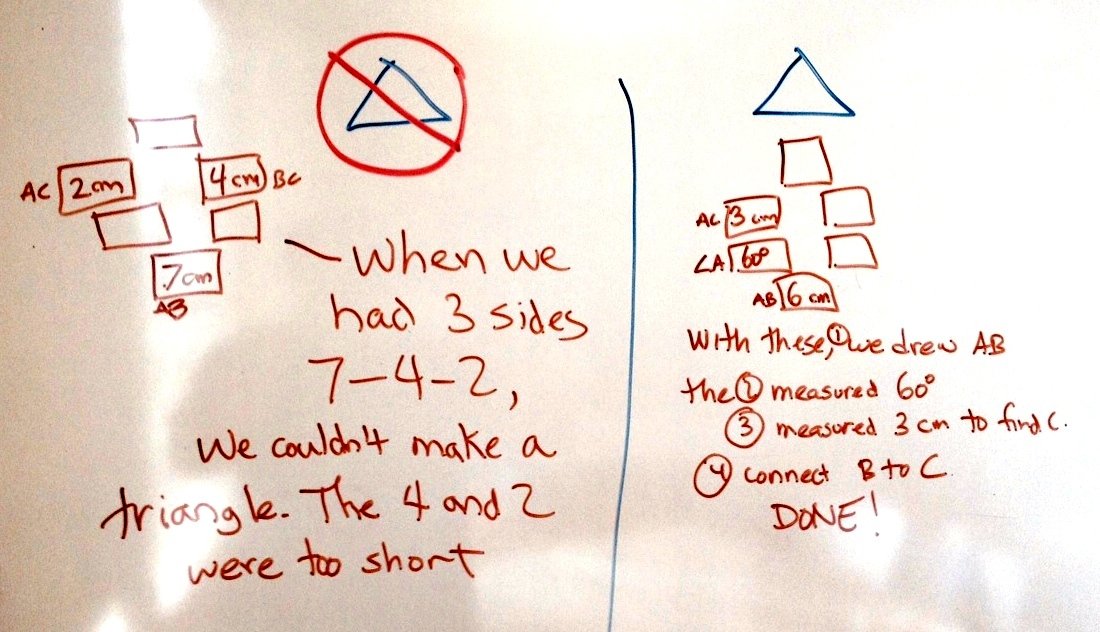 AC 2cm 4cm BC
7cm
AB
When we
had 3 sides
7-4-2,
We couldn't make a
triangle. The 4 and 2
were too short
AC 3 cm
∠A 60°
AB 6 cm
With these, ① we drew AB
the ② measured 60°
③ measured 3 cm to find C.
④ connect B to C
DONE!